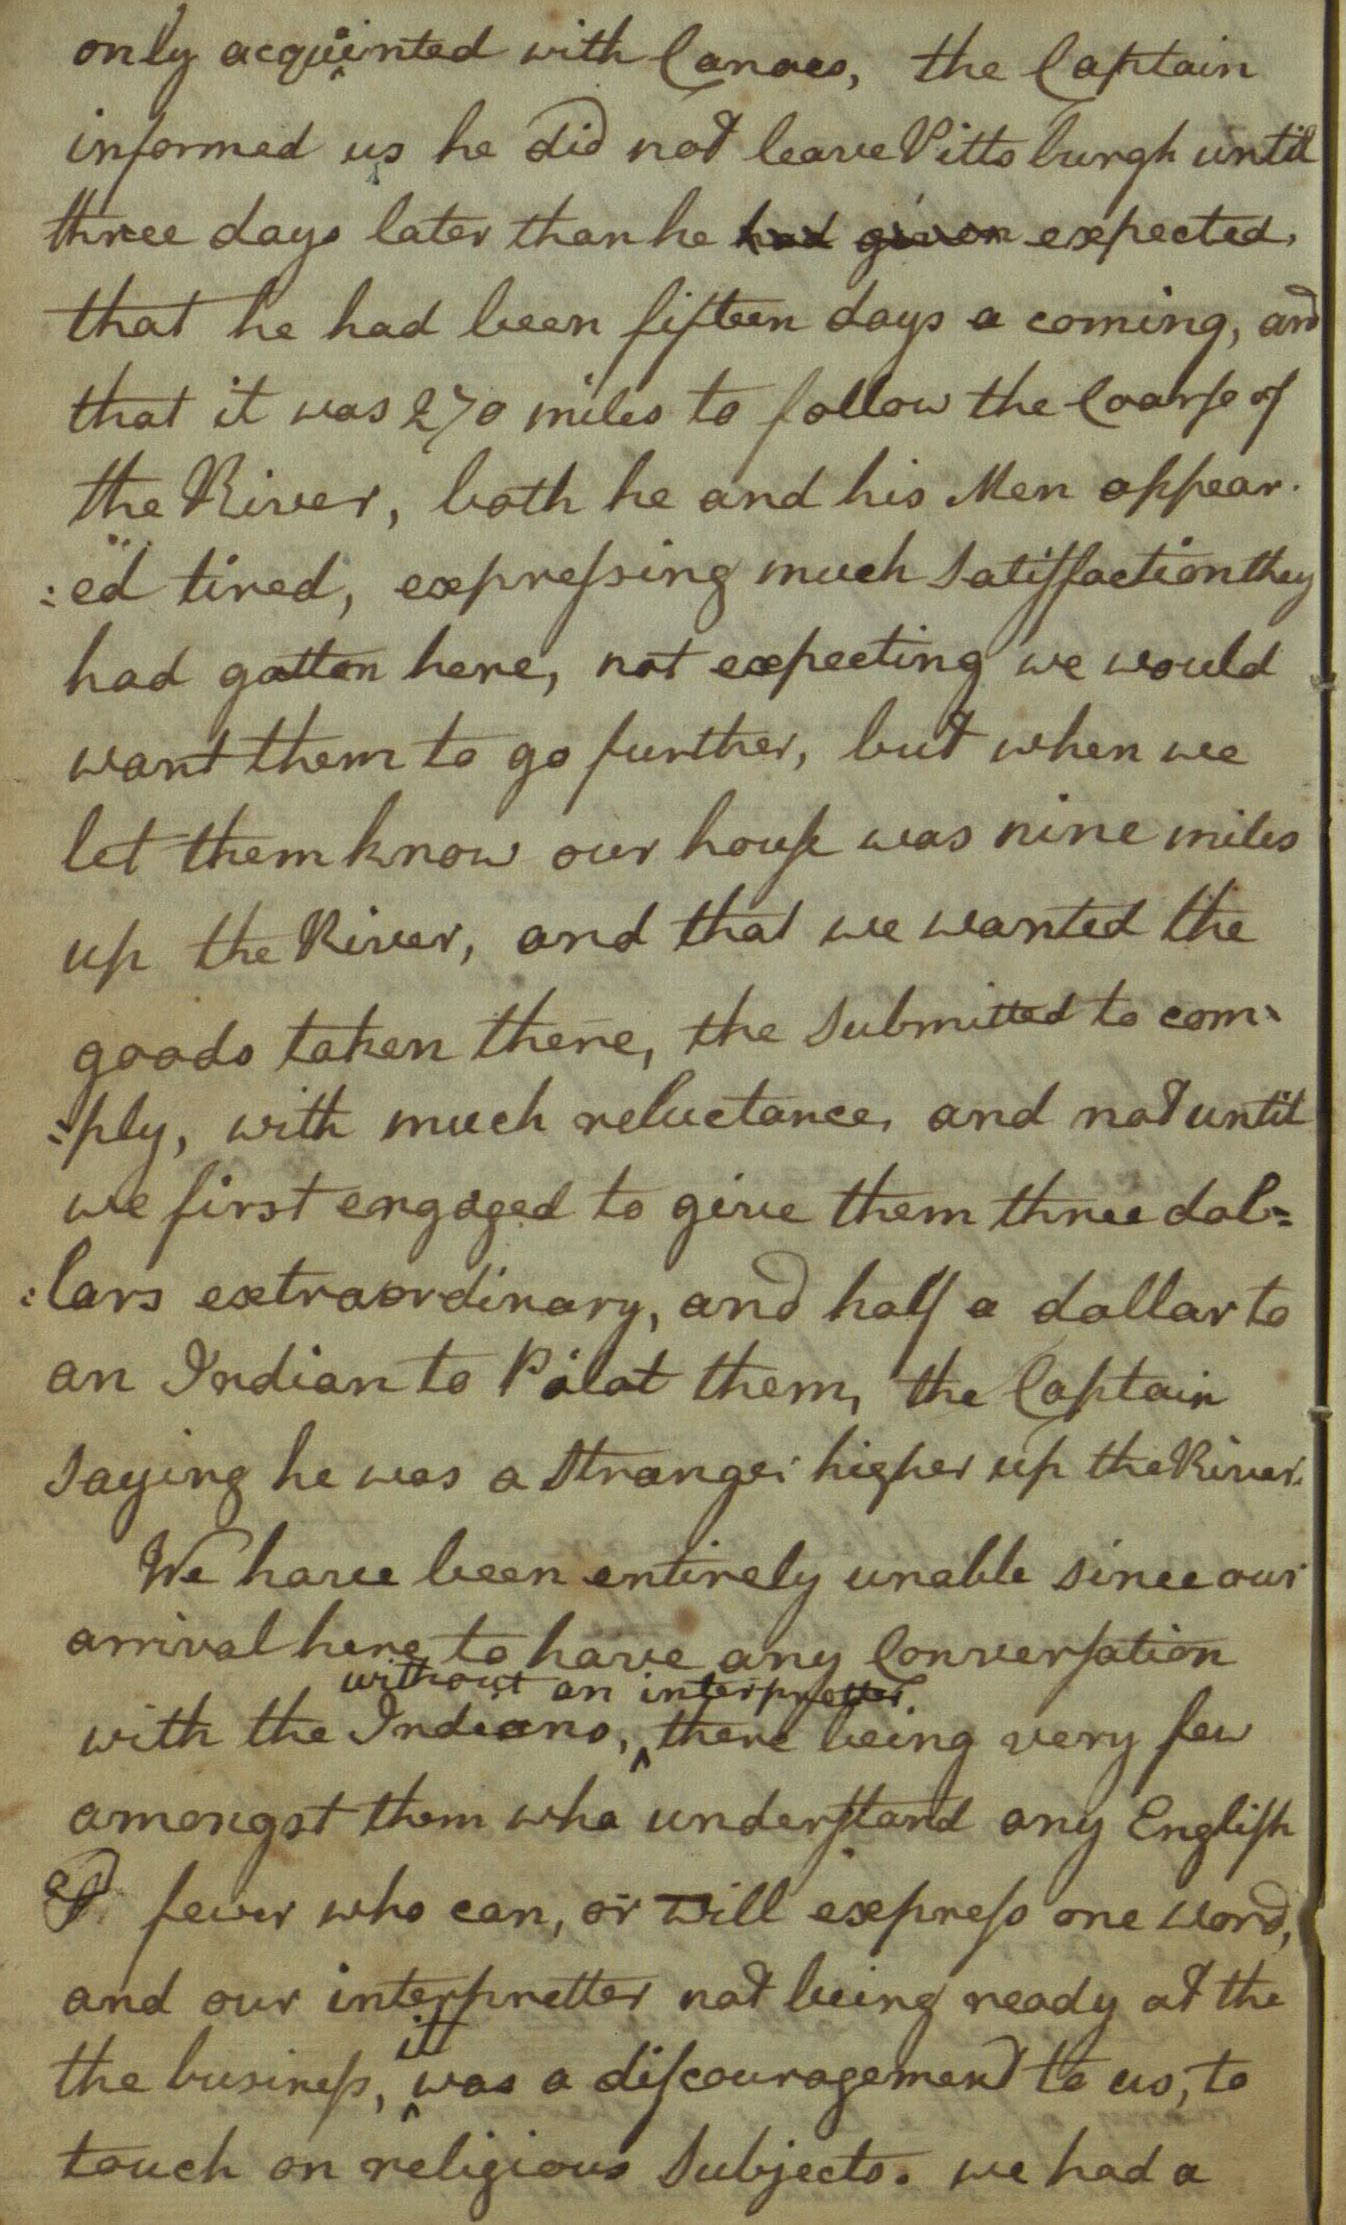 only acquinted with Canoes, the Captain
informed us he did not leave Pittsburgh until
three days later than he had given expected,
that he had been fifteen days a coming, and
that it was 270 miles to follow the Coarse of
the River, both he and his Men appear-
:ed tired, expressing much Satisfaction they
had gotten here, not expecting we would
want them to go further, but when we
let them know our house was nine miles
up the River, and that we wanted the
goods taken there, the Submitted to com-
:ply, with much reluctance, and not until
we first engaged to give them three dol=
:lars extraordinary, and half a dollar to
an Indian to Pilot them, the Captain
saying he was a Stranger higher up the River.
We have been entirely unable since our
arrival here to have any Conversation
without an interpretter.
with the Indians, ^ there being very few
amongst them who understand any English
& fewer who can, or will express one word,
and our interpretter not being ready at the
it
the business, ^ was a discouragement to us, to
touch on religious Subjects. we had a